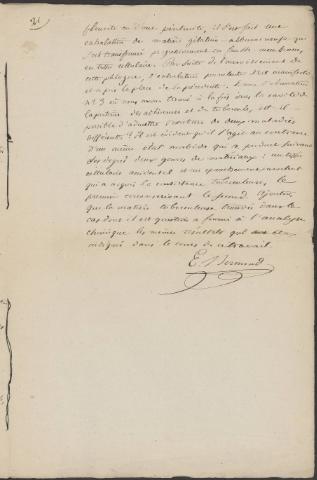 21
pleurite ou d'une péritonite, il s'est fait une
exhalation de matière gélatino albumineuse qui
s'est transformée progressivement en fausse membrane,
en tissu cellulaire. Par suite de l'envahissement de
cette phlogose, l'exhalation purulente s'est manifestée
et a pris la place de la précédente. Dans l'observation
n° 3 où nous avons trouvé à la fois dans la cavité de
la poitrine des adhérences et des tubercules, est-il
possible d'admettre l'existence de deux maladies
différentes ? Il est évident qu'il s'agit au contraire
d'un même état morbide qui a produit suivant
ses degrés deux genres de matériaux : un tissu
cellulaire accidentel et un épanchement purulent
qui a acquis la consistance tuberculeuse, le
premier circonscrivant le second. Ajoutons
que la matière tuberculeuse trouvée dans le
cas dont il est question a fourni à l'analyse
chimique les mêmes résultats que
indiqués dans le cours de ce travail.
E.